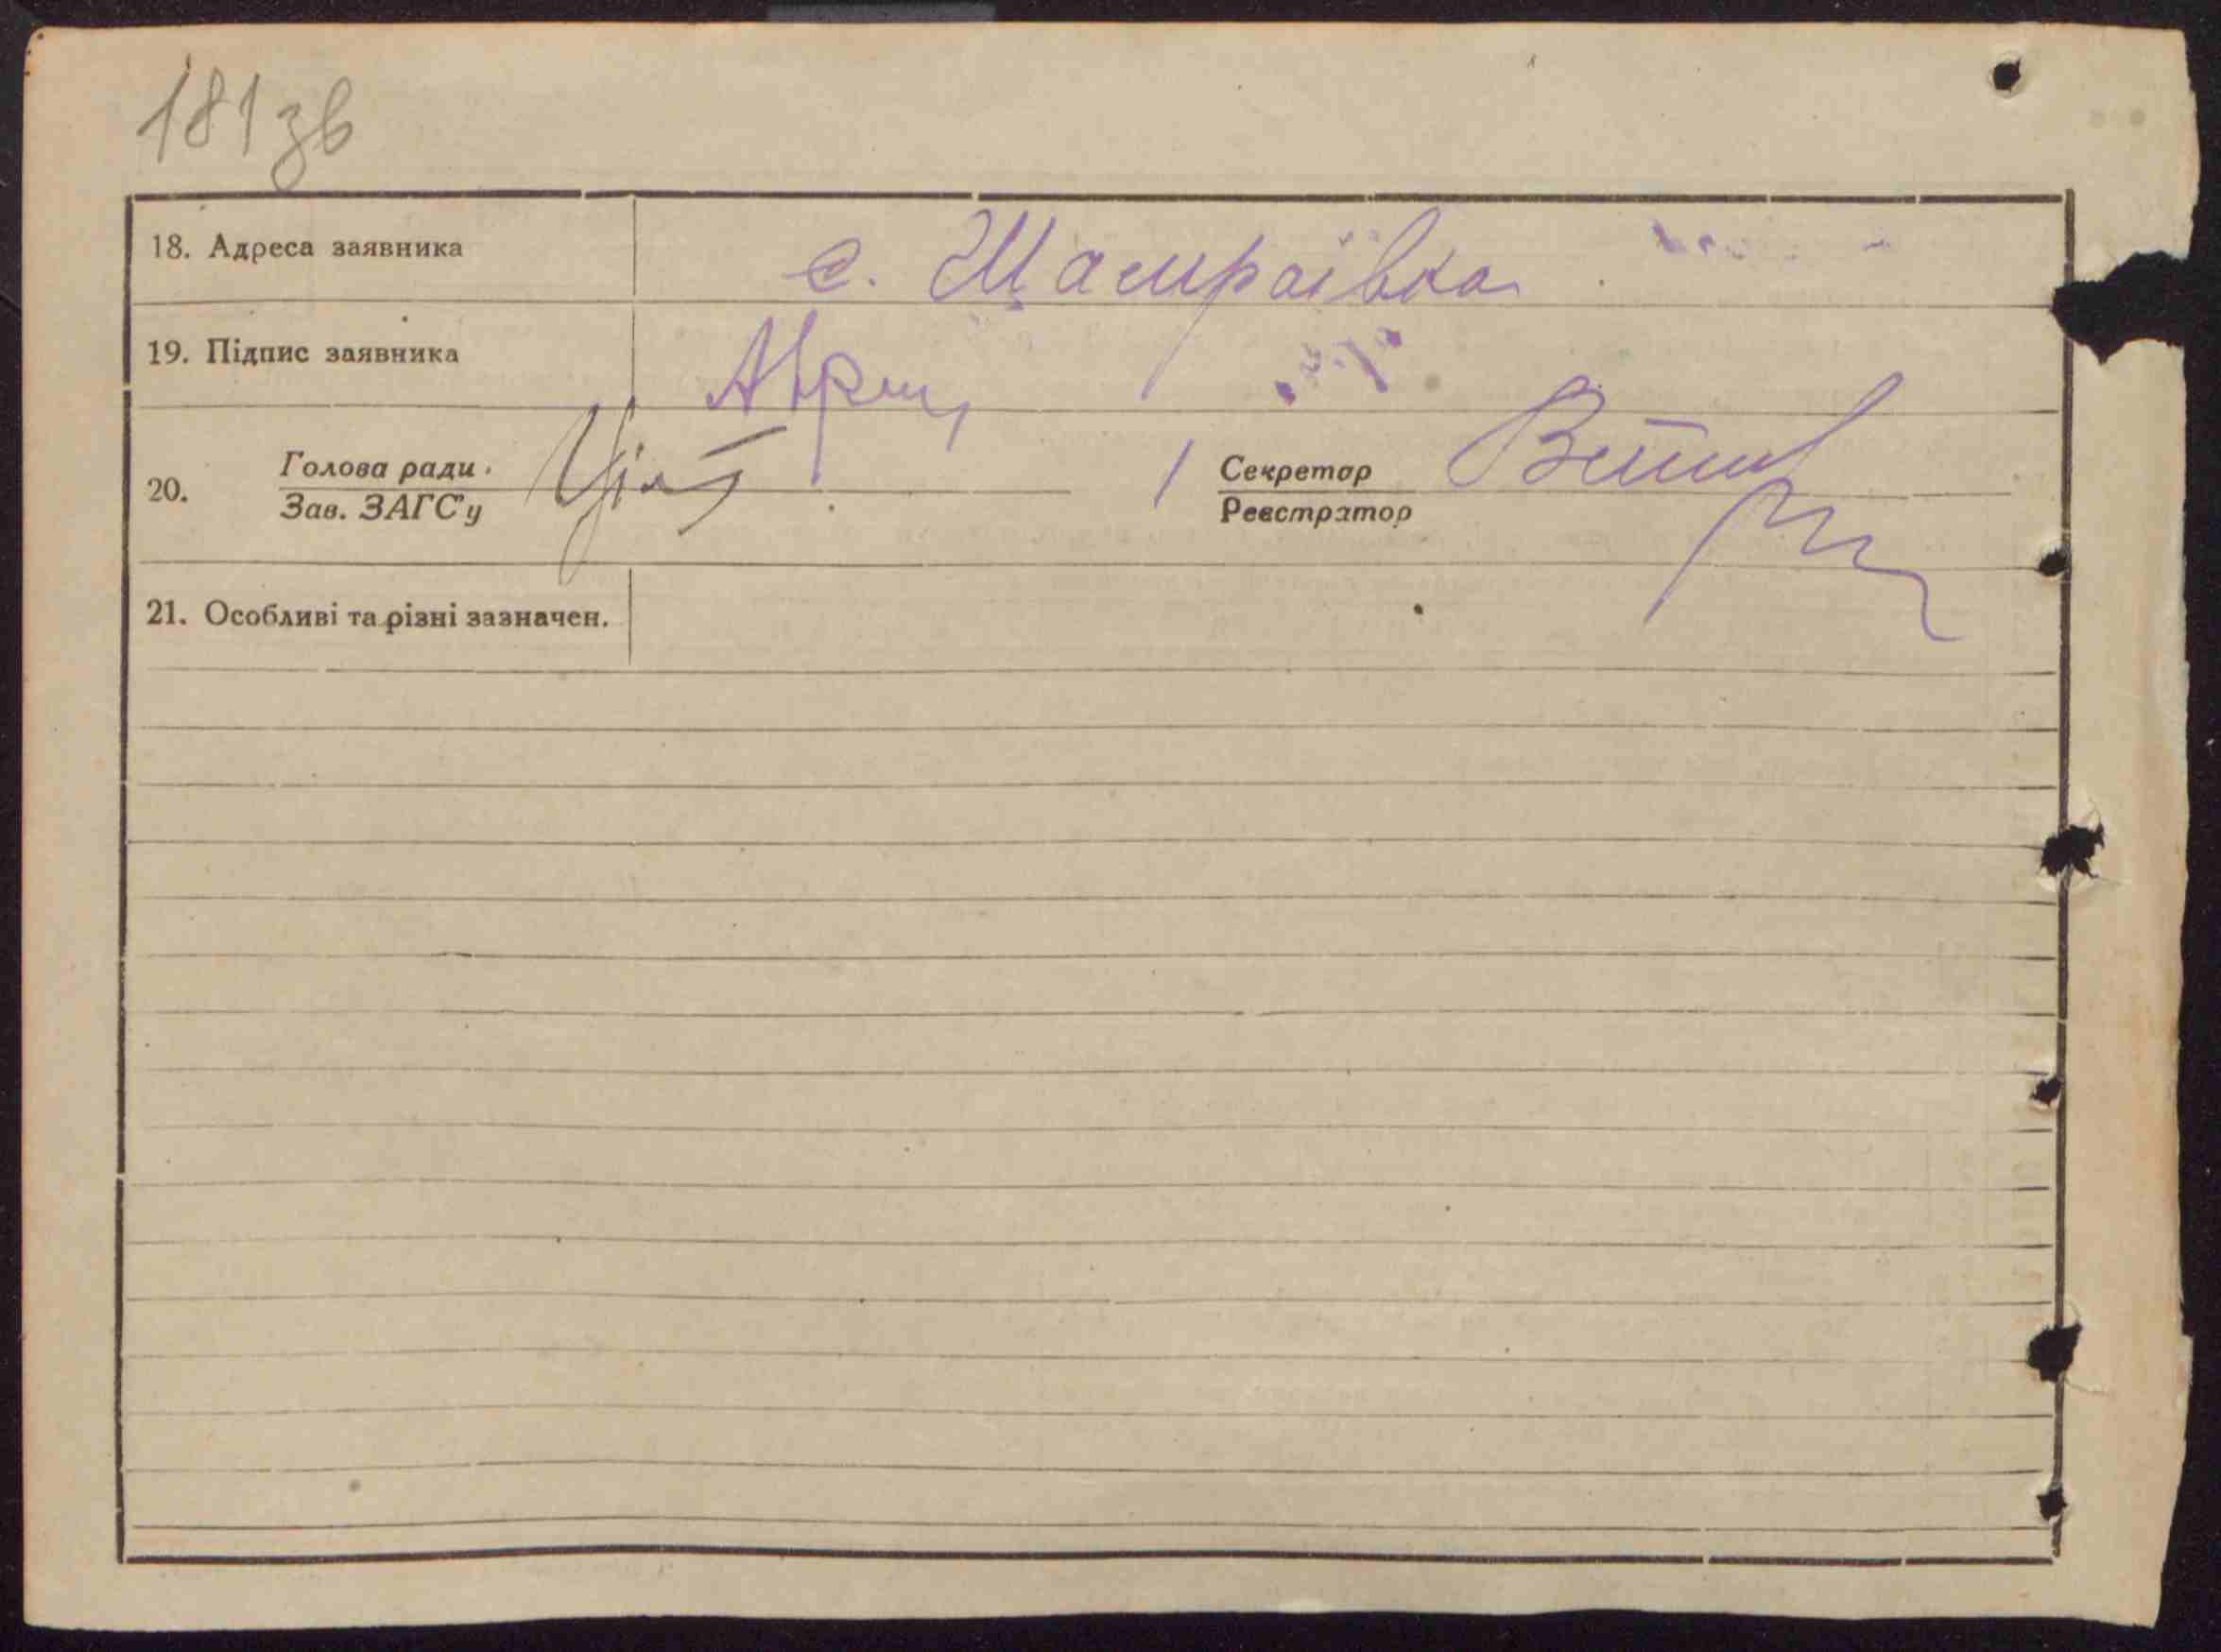 181зв
18. Адреса заявника с. Шамраївка
19. Підпис заявника
20. Голова ради Секретар
Зав. ЗАГС'у Реєстратор
21. Особливі та різні зазначен.